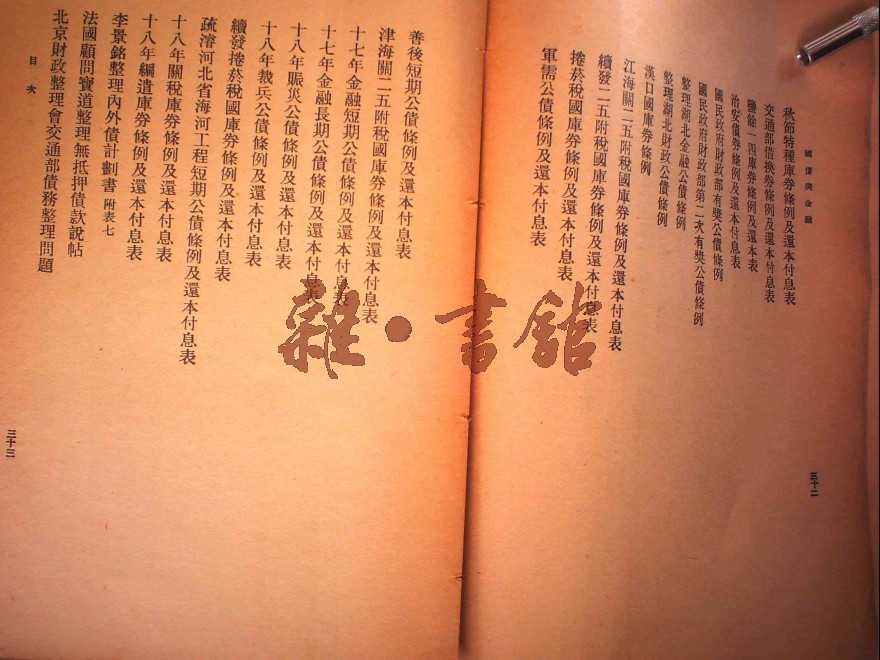 國債與金融
秋節特種庫券條例及還本付息表
交通部借換券條例及還本付息表
鹽餘一四庫券條例及還本表
治安債券條例及還本付息表
國民政府財政部有獎公債條例
國民政府財政部第二次有獎公債條例
整理湖北金融公債條例
整理湖北財政公債條例
漢口國庫券條例
江海關二五附稅國庫券條例及還本付息表
續發二五附稅國庫券條例及還本付息表
捲菸稅國庫券條例及還本付息表
軍需公債條例及還本付息表
三十二
善後短期公債條例及還本付息表
津海關二五附稅國庫券條例及還本付息表
十七年金融短期公債條例及還本付息表
十七年金融長期公債條例及還本付息表
十八年賑災公債條例及還本付息表
十八年裁兵公債條例及還本付息表
續發捲菸稅國庫券條例及還本付息表
疏濬河北省海河工程短期公債條例及還本付息表
十八年關稅庫券條例及還本付息表
十八年編遣庫券條例及還本付息表
李景銘整理內外債計劃書 附表七
法國顧問寶道整理無抵押債款說帖
北京財政整理會交通部債務整理問題
目次
三十三
雜·書館